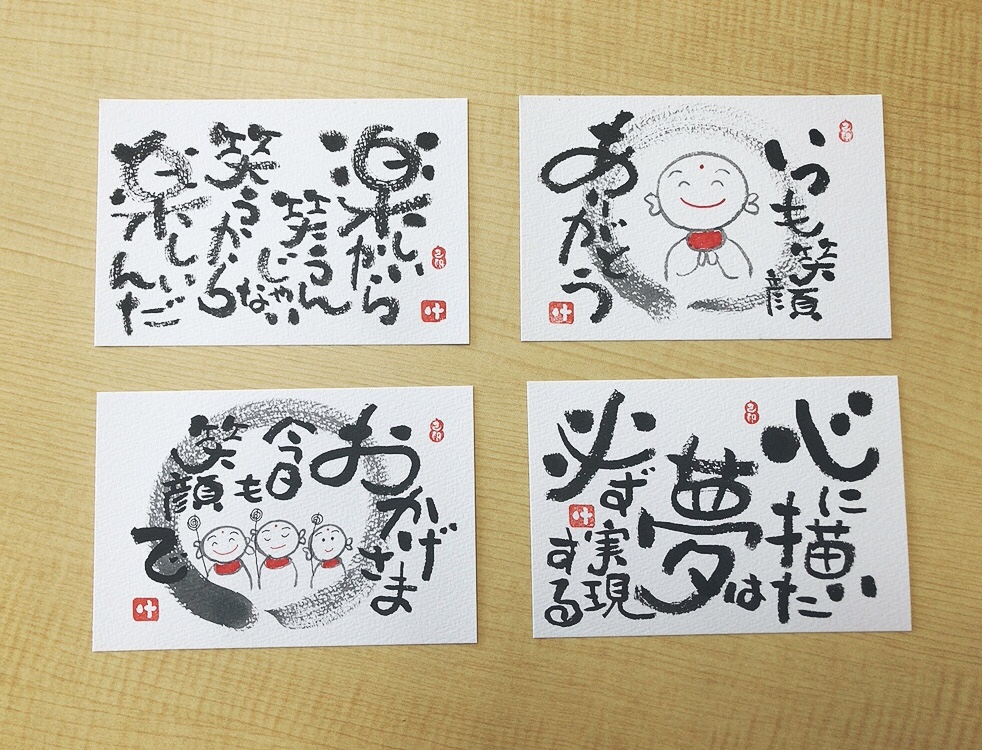 楽しいから
笑うん
じゃない
笑うから
楽しいんだ
叶
いつも笑顔
ありがとう
叶
おかげさま
今日も
笑顔
で
叶
心に描いた
夢は
必ず実現
する
叶